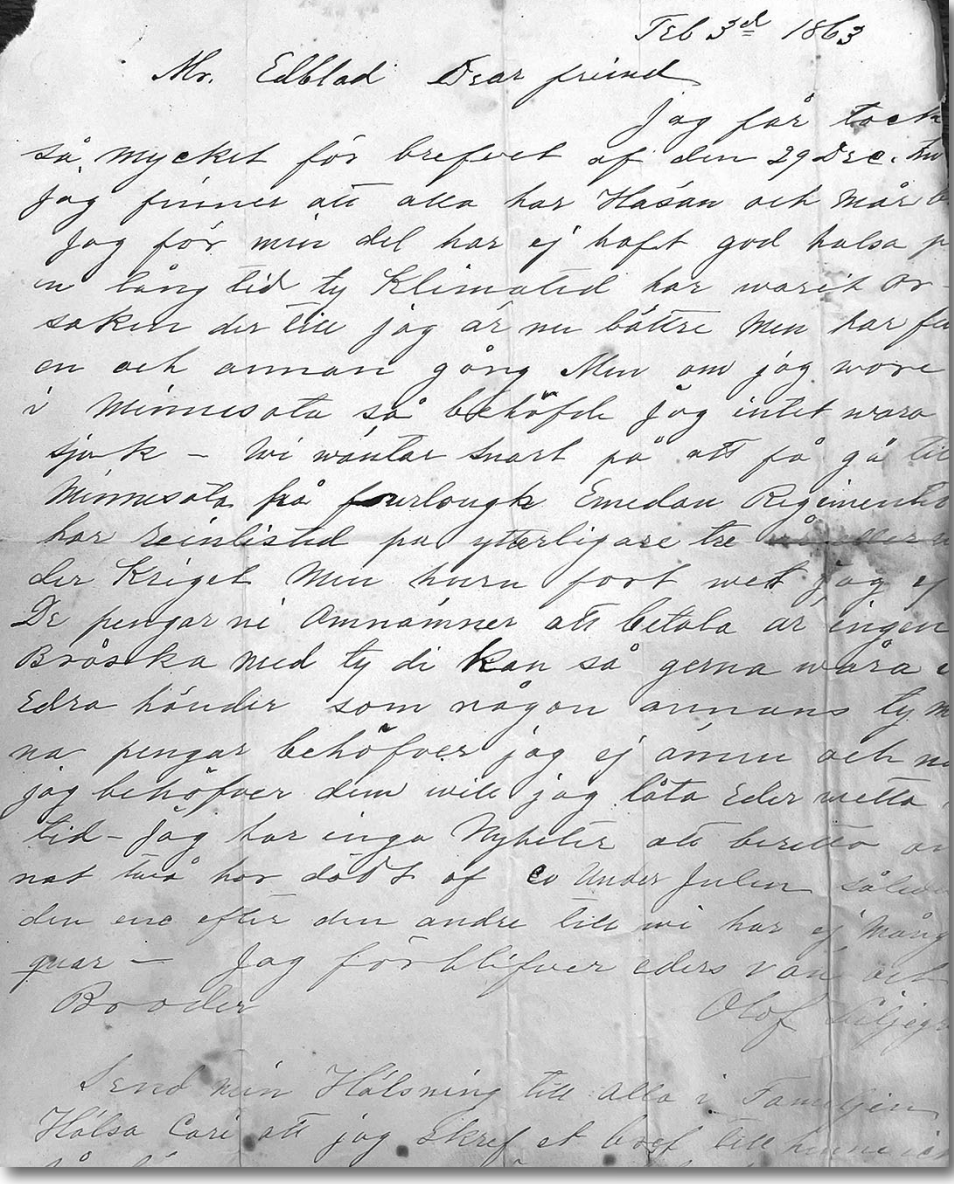 Feb 3d 1863
Mr. Edblad Dear friend
Jag får tack
så mycket för brefvet af den 29 Dec.
jag finner att alla har Hälsan och Mår
Jag för min del har ej haft god halsa
en lång tid ty Klimatid har warit or-
saken der till jag är nu bättre Men har
en och annan gång Men om jag wore
i Minnesota så behöfde jag intet wara
sjuk – Wi wäntar snart på att få gå
Minnesota på fourlough Emedan
har reinlisted på ytterligare tre
der Kriget Men huru fort wet jag ej
De pengar ni Omnämner att betala är ingen
Bråska Med ty di kan så gerna wara
Edra händer som någon annans ty
na pengar behöfver jag ej ännu och
jag behöfver dem will jag låta Eder wetta
tid – Jag har inga Nyheter att beretta
nat två har dödt af Co Under Julen
den ene efter den andre till wi har ej
quar – Jag förblifver eders van och
Broder Olof
Send min Hälsning till alla i Familjen
Hälsa Cari att jag Skref et bref till henne